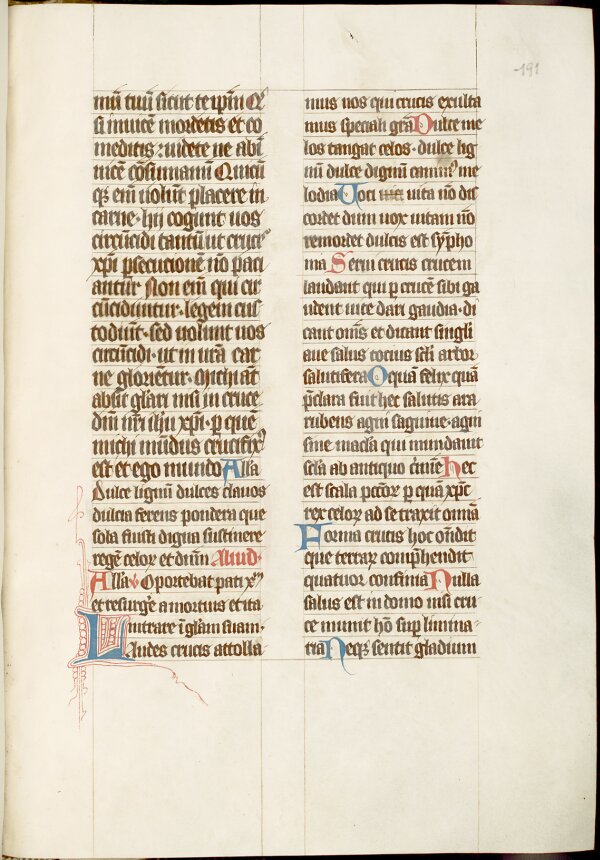 191
mū tuū sicut te ip̄m Q'
si inuicē mordetis et co
meditis : uidete ne abī
uicē cōsumamī Quicū
qꝫ em̄ uolūt placere in
carne · hij cogunt uos
circūcidi tantū ut cruc̄
xp̄i ꝑsecucionē nō pati
antur Non em̄ qui cir
cūciduntur · legem cus
todiūt · sed uolunt uos
circūcidi · ut in ur̄a car
ne glorientur · Michi aūt
absit gl̄ari nisi in cruce
dn̄i nr̄i ih̄u xp̄i · ꝑ quē
michi mūdus crucifix'
est et ego mundo All̄a
Dulce lignū dulces clauos
dulcia ferens pondera que
sola fuisti digna sustinere
regē celoꝝ et dn̄m Aliud
All̄a Oportebat pati xp̄m
et resurg'e a mortuis et ita
intrare ī gl̄am suam ·
Laudes crucis attolla
mus nos qui crucis exulta
mus speciali gr̄a Dulce me
los tangat celos · dulce lig
nū dulce dignū camin' me
lodia Uoci uita nō dis
cordet dum uox uitam nō
remordet dulcis est sym̄pho
nia Serui crucis crucem
laudant qui ꝑ crucē sibi ga
udent uite dari gaudia · di
cant om̄s et dicant singli
aue salus tocius sc̄li arbor
salutifera O quā felix quā
ꝑclara fuit hec salutis ara
rubens agni saguine · agni
sine macla qui mundauit
sc̄la ab antiquo c'mīe Hec
est scala pctoꝝ ꝑ quā xp̄c
rex celoꝝ ad se traxit omīa
Forma crucis hoc on̄dit
que terraꝝ comp'hendit
quatuor confinia Nulla
salus est in domo nisi cru
ce munit hō suꝑ limina
ria Neqꝫ sentit gladium